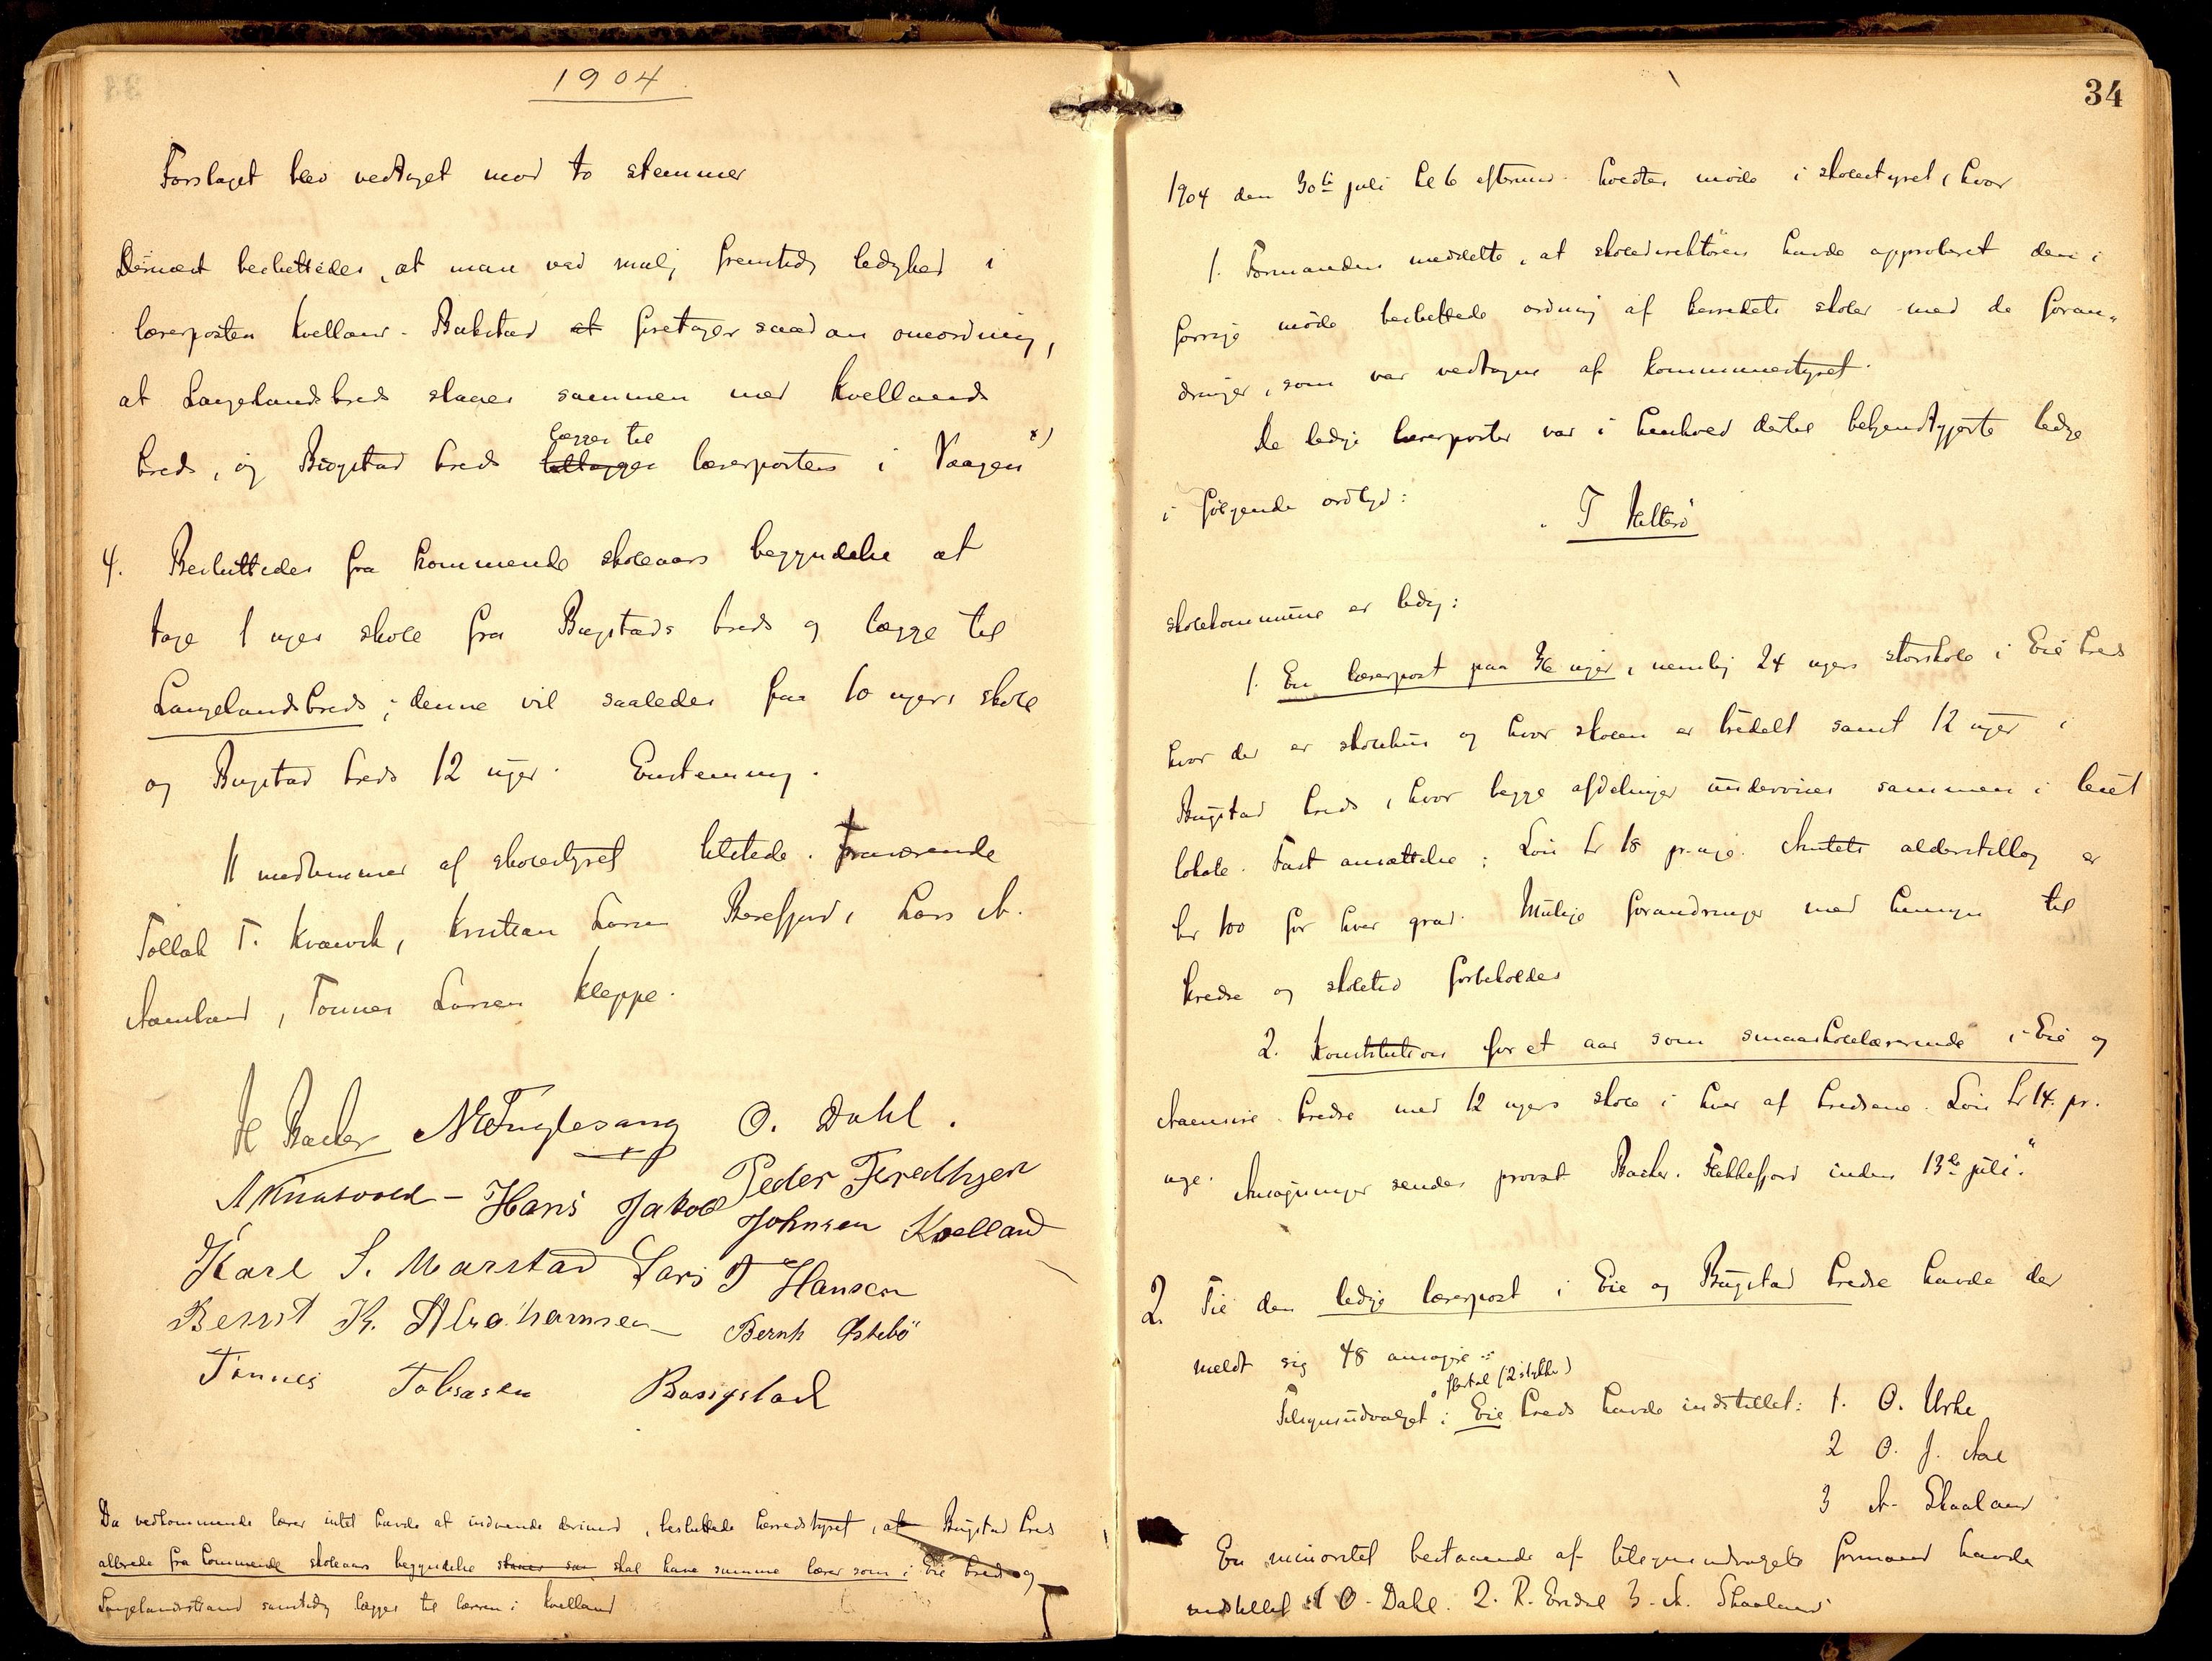 1904
Forslaget blev vedtaget mod to stemmer
Dernæst besluttedes, at man ved mulig fremtidig ledighed i
lærerposten Kvelland-Bukstad at foretager saadan omordning,
at Langelandskreds slaaes sammen med Kvellands
kreds, og Bugstad kreds lægges til lærerposten i Vaagen x)
4. Besluttedes fra kommende skoleaars begyndelse at
tage 1 uges skole fra Bugstads kreds og lægge til
Langelandskreds; denne vil saaledes faa 10 ugers skole
og Bugstad kreds 12 uger. Enstemmig.
11 medlemmer af skolestyret tilstede. Fraværende
Tollak T. Kvævik, Kristian Larsen Berefjord, Lars A.
Aamland, Tønnes Larsen Kleppe.
H Bacher N E Fuglesang O. Dahl.
A Knutsvold - Hans Jakob Peder Fredthjen
Johnsen Kvelland
Karl S. Marstad Lars T Hansen
Bernt K. Abrahamsen Bernh Østebö
Tönnes Tobiasen Bougstad
Da vedkommende lærer intet havde at indvende derimod, besluttede herredstyret, at Bugstad kreds
allerede fra kommende skoleaars begyndelse skal have samme lærer som i Eie kreds og
Langelandsstrand samtidig lægges til læreren i Kvelland
34
1904 den 30te juli kl 6 efterm. holdtes møde i skolestyret, hvor
1. Formanden meddelte, at skoledirektören havde approberet den i
forrige møde besluttede ordning af herredets skoler med de foran„
dringer, som var vedtagne af kommunestyret.
De ledige lærerposter var i henhold dertil bekjendtgjorte ledige
i følgende ordlyd:
„I Hitterö
skolekommune er ledig:
1. En lærerpost paa 36 uger, nemlig 24 ugers storskole i Eie kreds
hvor der er skolehus og hvor skolen er tredelt samt 12 uger i
Bugstad kreds, hvor begge afdelinger undervises sammen i leiet
lokale. Fast ansættelse; Løn kr 18 pr. uge. Amtets alderstillæg er
kr 100 for hver grad. Mulige forandringer med hensyn til
kredse og skoletid forbeholdes
2. Konstitution for et aar som smaaskolelærerinde i Eie og
Aaensire kredse med 12 ugers skole i hver af kredsene. Løn kr 14. pr.
uge. Ansøgninger sendes provst Bacher. Flekkefjord inden 13de juli."
2. Til den ledige lærerpost i Eie og Bugstad kredse havde der
meldt sig 48 ansøgere
flertal (2 stykker)
Tilsynsudvalget i Eie kreds havde indstillet: 1. O. Urke
2 O. J. Aal
3 A. Skaaland
En minoritet bestaaende af tilsynsudvalgets formand havde
indstillet 1 O. Dahl. 2. R. Endal 3. A. Skaaland